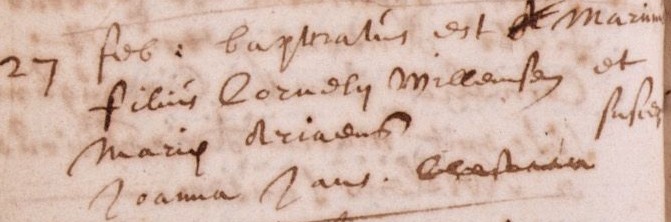 27 feb: baptizatus est Marinus
filius Cornelij Willemsen et
Mariæ Ariaens suscep
Joanna Jans.